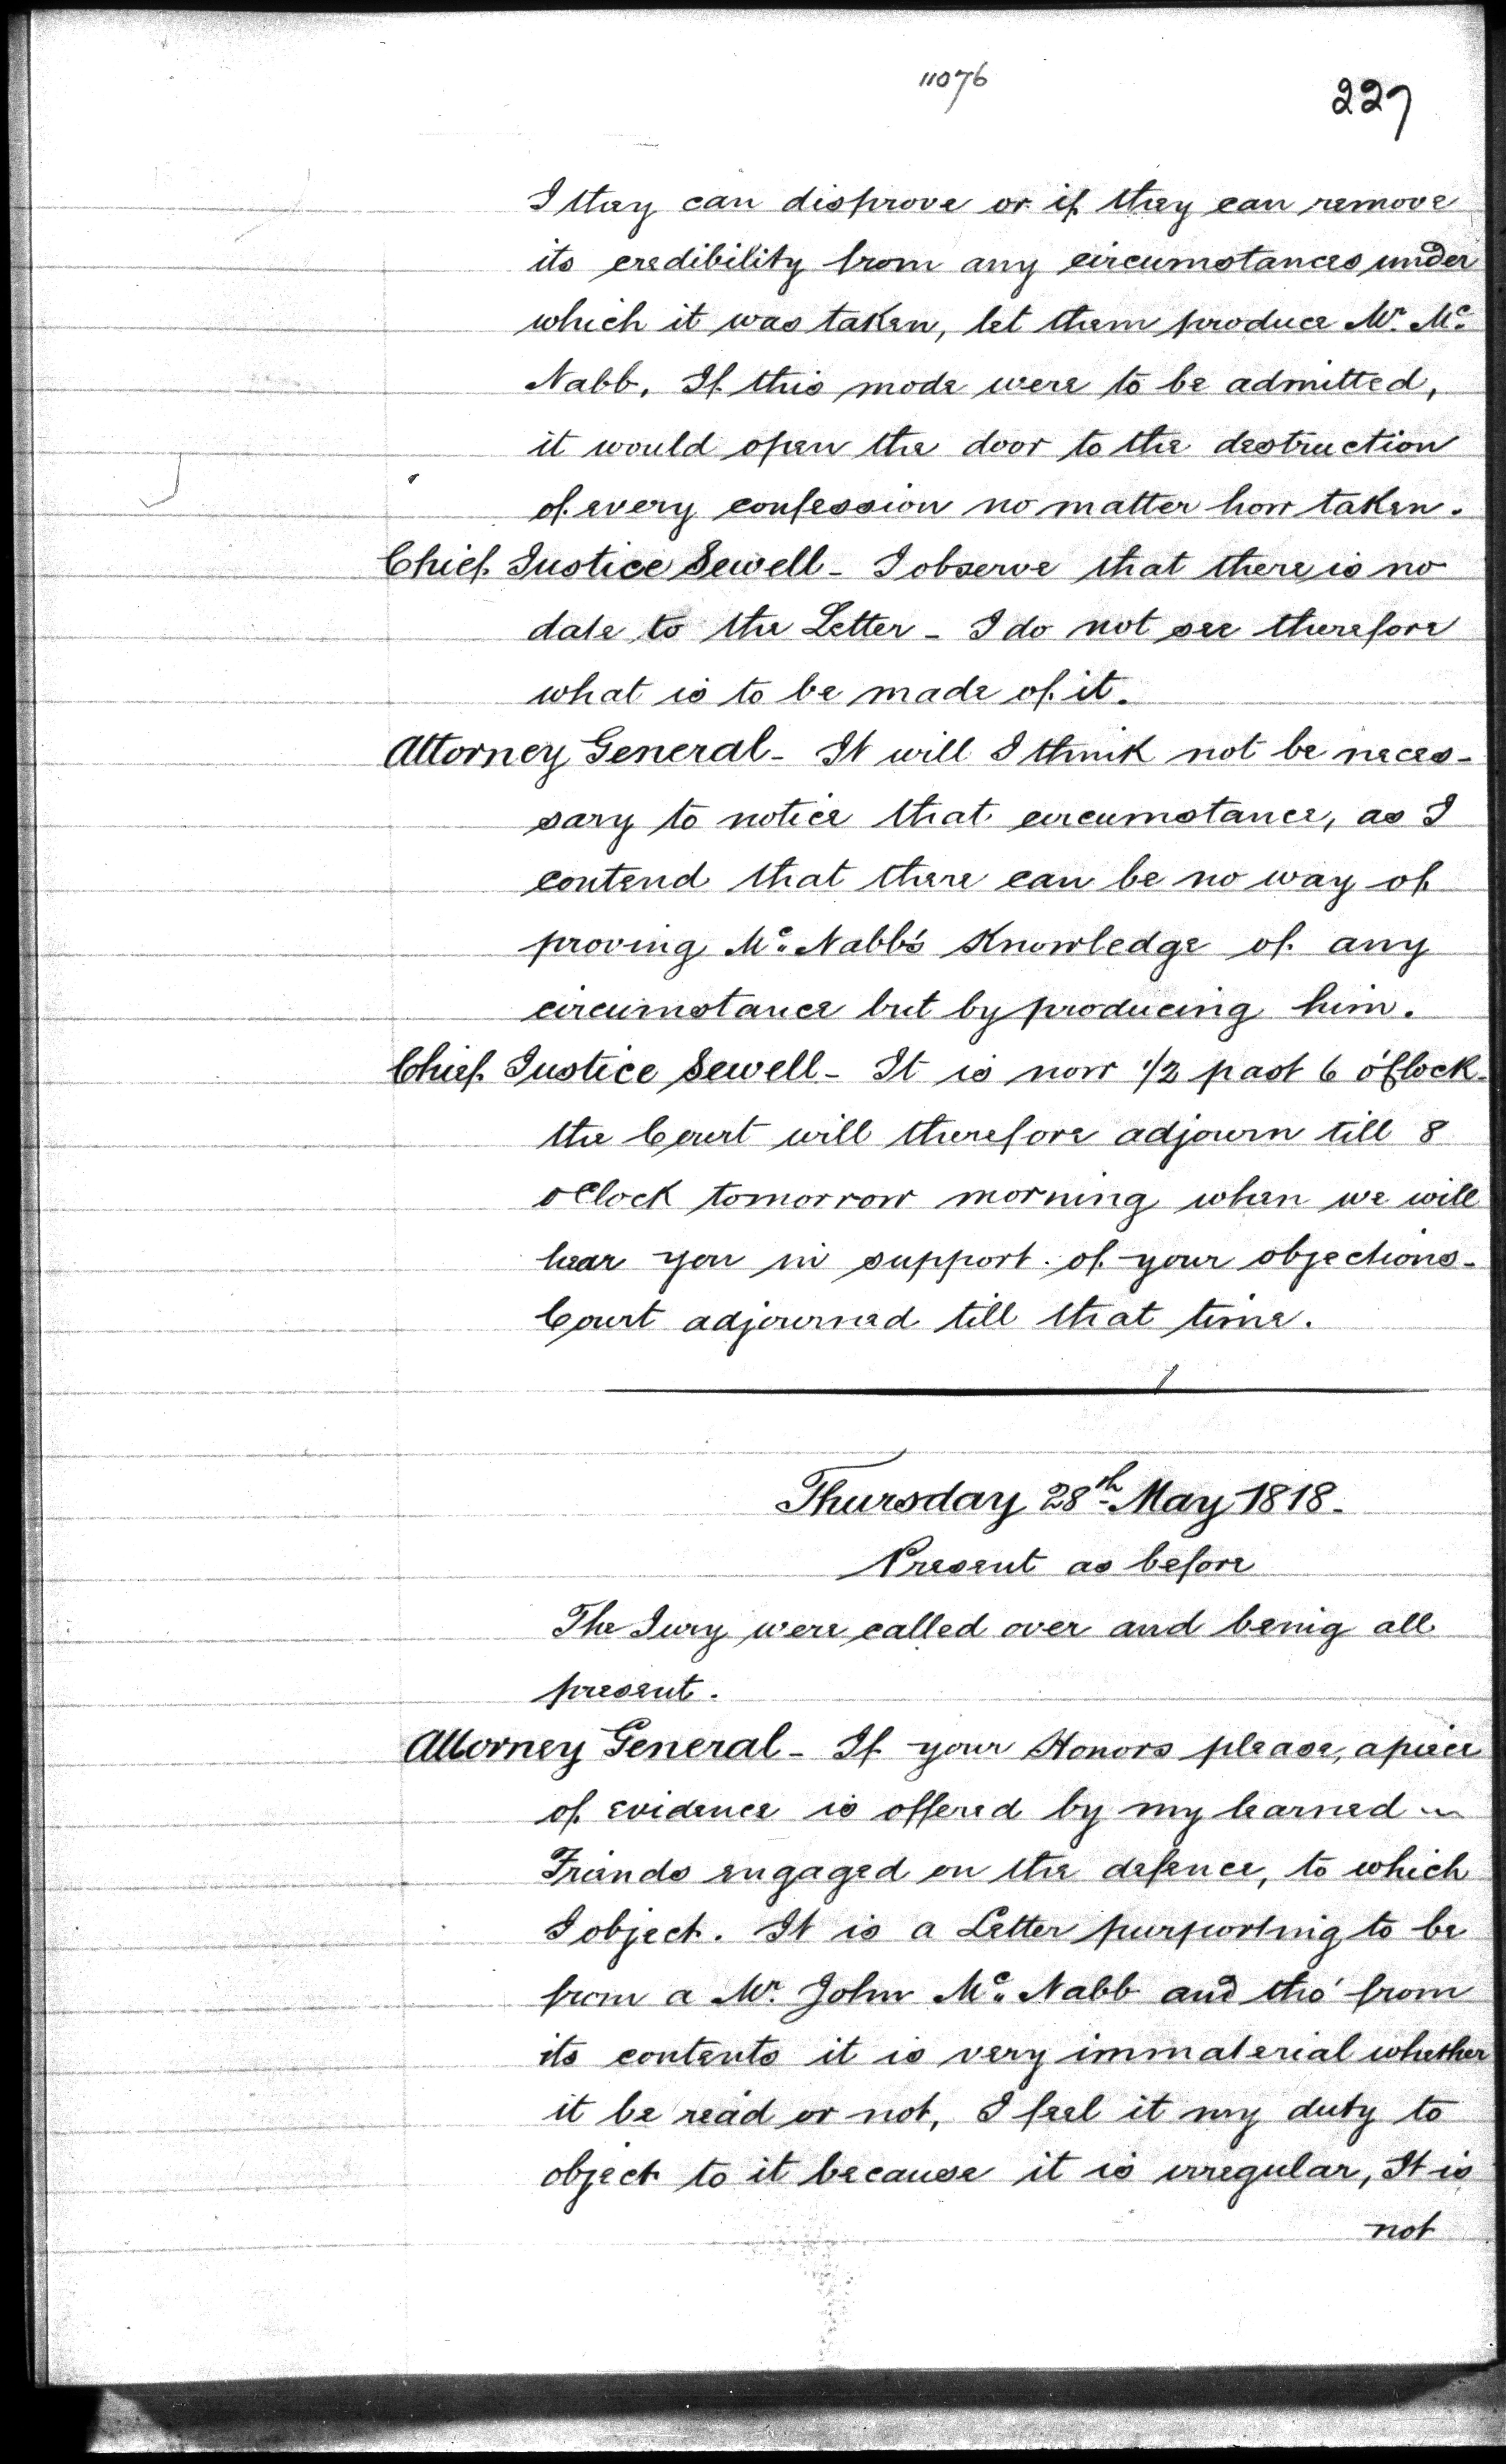 11076
227
I they can disprove or if they can remove
its credibility from any circumstances under
which it was taken, let them produce Mr. Mc.
Nabb, If this mode were to be admitted,
it would open the door to the destruction
of every confession no matter how taken.
Chief Justice Sewell - I observe that there is no
date to the Letter - I do not see therefore
what is to be made of it.
Attorney General - It will I think not be neces-
sary to notice that circumstance, as I
contend that there can be no way of
proving Mc. Nabb's Knowledge of any
circumstance but by producing him.
Chief Justice Sewell - It is now 1/2 past 6 o'Clock -
the Court will therefore adjourn till 8
oClock tomorrow morning when we will
hear you in support of your objections -
Court adjourned till that time.
Thursday 28th May 1818 -
Present as before
The Jury were called over and being all
present.
Attorney General - If your Honors please, a piece
of evidence is offered by my learned
Friends engaged on the defence, to which
I object. It is a Letter purporting to be
from a Mr. John Mc. Nabb and tho' from
its contents it is very immaterial whether
it be read or not, I feel it my duty to
object to it because it is irregular, It is
not